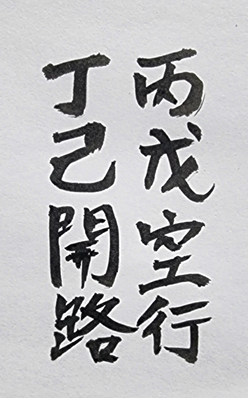 丙戊空行
丁己開路